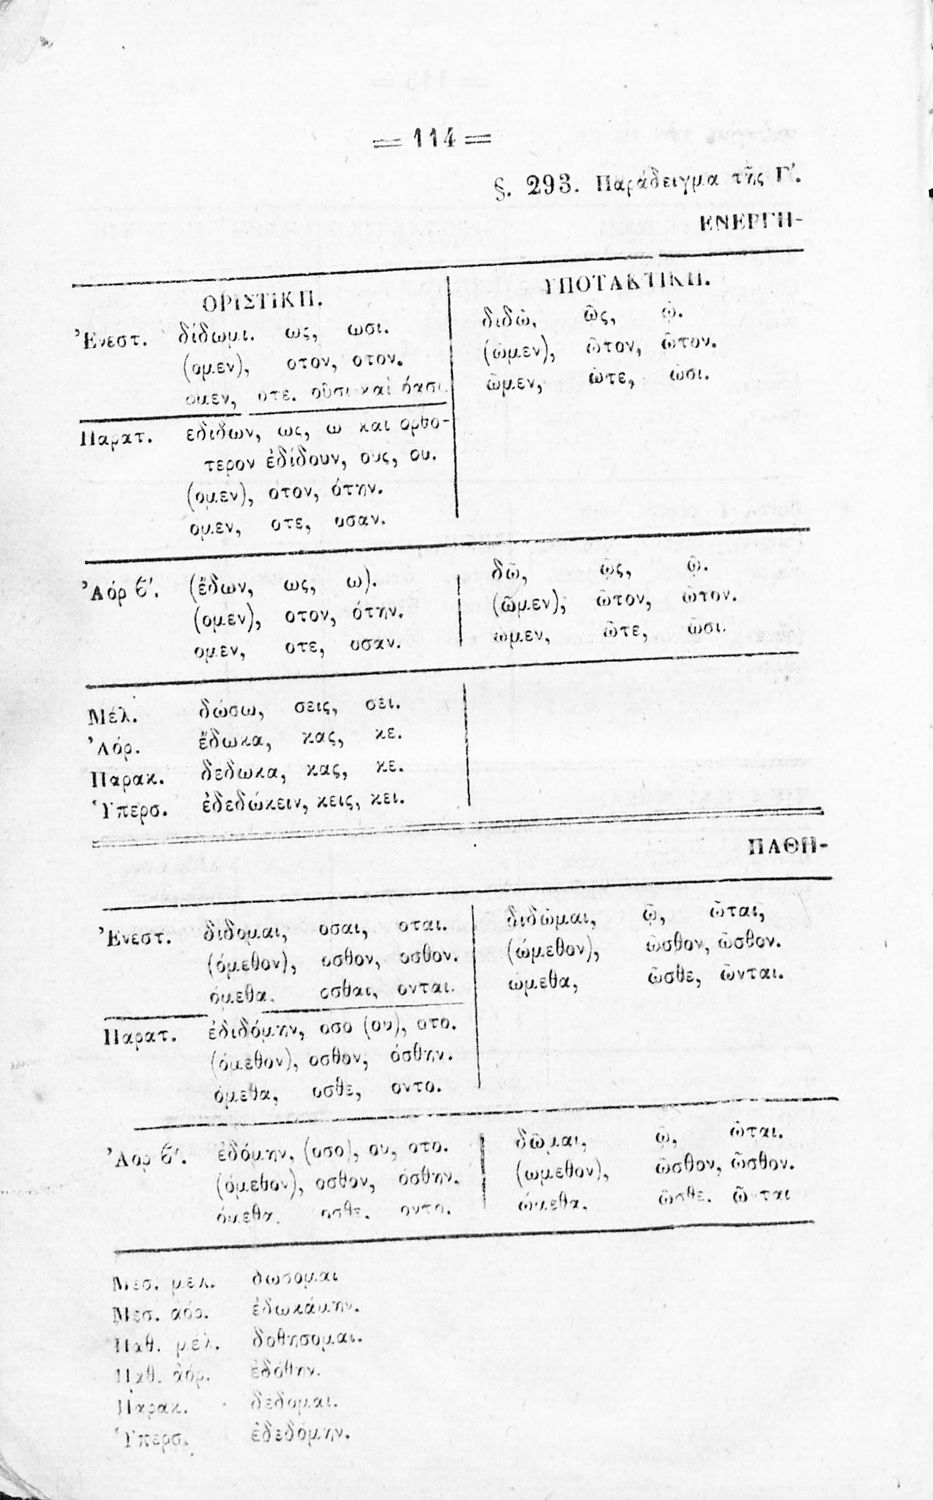 = 114 =
§. 293. Παράδειγμα τῆς Γ΄.
ΕΝΕΡΓΗ-
ΟΡΙΣΤΙΚΗ. ΥΠΟΤΑΚΤΙΚΗ.
Ἐνεστ. δίδωμι. ως, ωσι. διδῶ, ῷς, ῷ.
(ομεν), οτον, οτον. (ῶμεν), ῶτον, ῶτον.
ομεν, οτε. οῦσι καὶ όασι. ῶμεν, ῶτε, ῶσι.
Παρατ. εδιδων, ως, ω και ορθο-
τερον ἐδίδουν, ους, ου.
(ομεν), οτον, ότην.
ομεν, οτε, οσαν.
Ἀόρ β΄. (ἔδων, ως, ω). δῶ, ῷς, ῷ.
(ομεν), οτον, ότην. (ῶμεν), ῶτον, ῶτον.
ομεν, οτε, οσαν. ῶμεν, ῶτε, ῶσι.
Μέλ. δώσω, σεις, σει.
Ἀόρ. ἔδωκα, κας, κε.
Παρακ. δεδωκα, κας, κε.
Ὑπερσ. ἐδεδώκειν, κεις, κει.
ΠΑΘΗ-
Ἐνεστ. διδομαι, οσαι, οται. διδῶμαι, ῷ, ῶται,
(όμεθον), οσθον, οσθον. (ώμεθον), ῶσθον, ῶσθον.
όμεθα. οσθαι, ονται. ώμεθα, ῶσθε, ῶνται.
Παρατ. ἐδιδόμην, οσο (ου), οτο.
(όμεθον), οσθον, όσθην.
όμεθα, οσθε, οντο.
Ἀορ β΄. ἐδόμην, (οσο), ου, οτο. δῶμαι, ῷ, ῶται.
(όμεθον), οσθον, όσθην. (ωμεθον), ῶσθον, ῶσθον.
όμεθα. οσθε. οντο. ώμεθα. ῶσθε.
Μεσ. μελ. δωσομαι
Μεσ. αόρ. ἐδωκάμην.
Παθ. μέλ. δοθησομαι.
Παθ. ἀόρ. ἐδόθην.
Παρακ. δεδομαι.
Ὑπερσ. ἐδεδόμην.